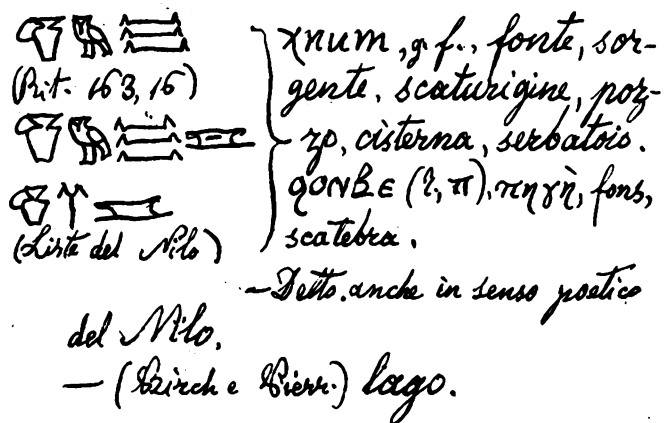 𓎸𓅓𓈗
(Rit. 163, 16)
𓎸𓅓𓈗𓈘
(Liste del Nilo)
χnum, g. f., fonte, sor-
gente, scaturigine, poz-
zo, cisterna, serbatoio.
ϩⲟⲛⲃⲉ (?, π). πηγὴ, fons,
scatebra.
— Detto anche in senso poetico
del Nilo.
— (Birch e Pierr.) lago.